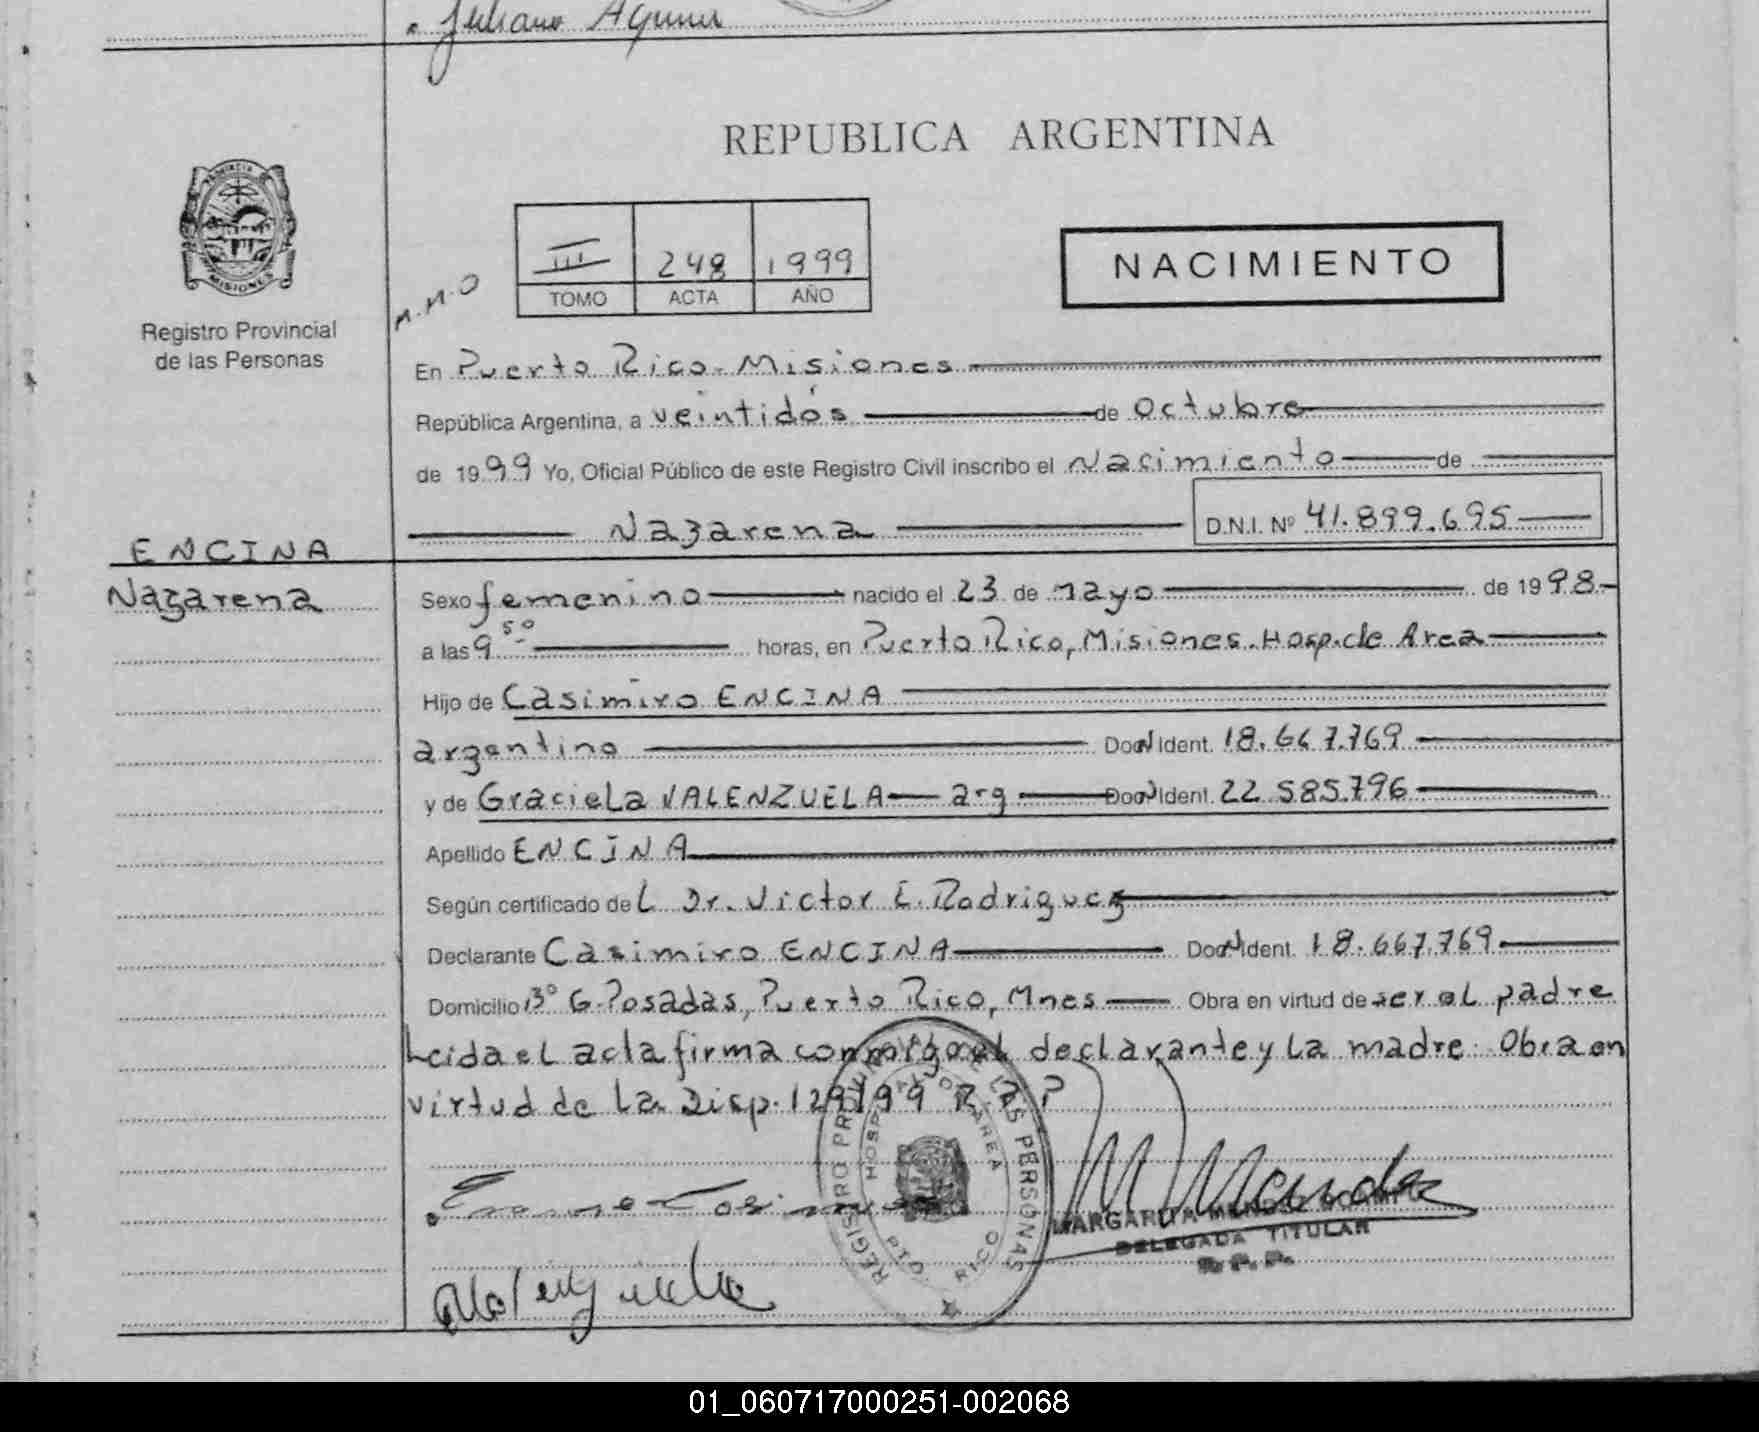 Juliana Aquino
REPUBLICA ARGENTINA
PROVINCIA DE MISIONES
Registro Provincial
de las Personas
M.M.O
III 248 1999
TOMO ACTA AÑO
NACIMIENTO
En Puerto Rico - Misiones
República Argentina, a veintidós de Octubre
de 1999 Yo, Oficial Público de este Registro Civil inscribo el Nacimiento de
Nazarena D.N.I. Nº 41.899.695
ENCINA
Nazarena
Sexo femenino nacido el 23 de mayo de 1998.-
a las 9 50 horas, en Puerto Rico, Misiones. Hosp. de Area
Hijo de Casimiro ENCINA
argentino Doc N Ident. 18.667.769
y de Graciela VALENZUELA — arg Doc N Ident. 22.585.796
Apellido ENCINA
Según certificado del Dr. Victor E. Rodriguez
Declarante Casimiro ENCINA Doc N Ident. 18.667.769
Domicilio Bº G. Posadas, Puerto Rico, Mnes Obra en virtud de ser el padre
Leida el acta firma conmigo el declarante y la madre. Obra en
virtud de la Disp. 129/99 R.P.P
REGISTRO PROVINCIAL DE LAS PERSONAS
HOSPITAL DE AREA
PTO RICO
MARGARITA MENDEZ OCAMPO
DELEGADA TITULAR
R.P.P.
01_060717000251-002068